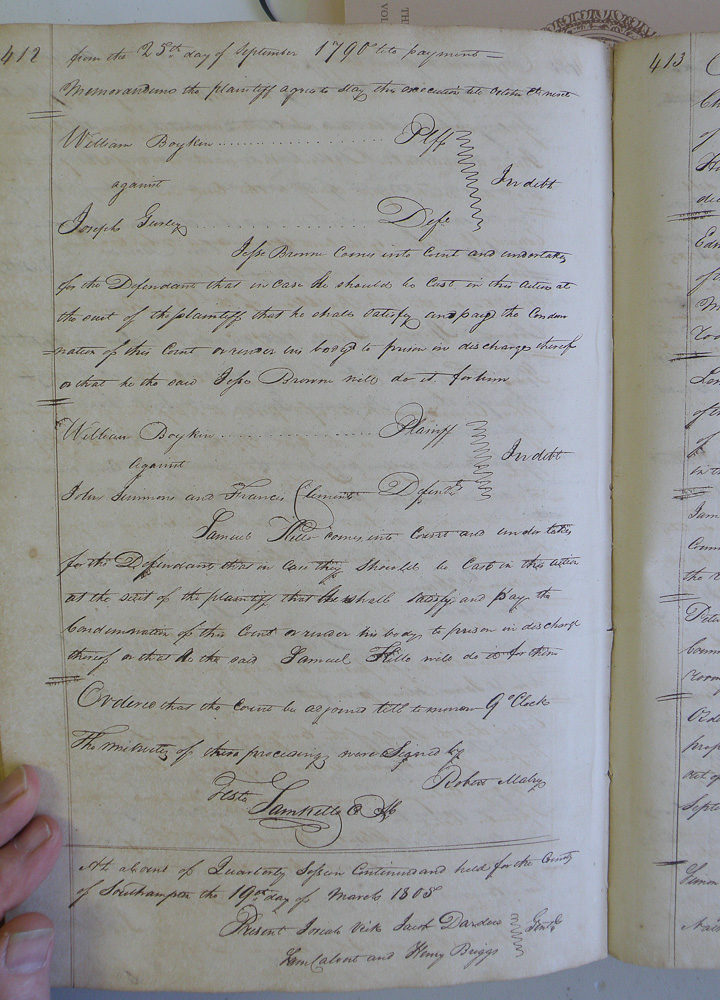 412
from the 25th day of September 1790 till payment
Memorandum the plaintiff agrees to stay this execution till October next
William Boykin Plff
against In debt
Joseph Gurley Deft
Jesse Browne comes into Court and undertakes
for the Defendant that in case he should be Cast in this action at
the suit of the plaintiff that he shall satisfy and pay the Condem
nation of this Court or render his body to prison in discharge thereof
or that he the said Jesse Browne will do it for him
William Boykin Plaintff
against In debt
John Simmons and Francis Clements Defendts
Samuel Kello comes into Court and undertakes
for the Defendants that in case they should be Cast in this action
at the suit of the plaintiff that he shall satisfy and pay the
Condemnation of this Court or render his body to prison in discharge
thereof or that he the said Samuel Kello will do it for them
Ordered that the Court be adjornd till tomorrow 9 oClock
The minutes of these proceedings were Signed by
Robert Mabry
Teste
Sam Kello C
At a Court of Quarterly Session Continued and held for the County
of Southampton the 19th day of March 1805
Present Josiah Vick Jacob Darden Gent
Calvert and Henry Briggs
413
of
of
of
in the
the